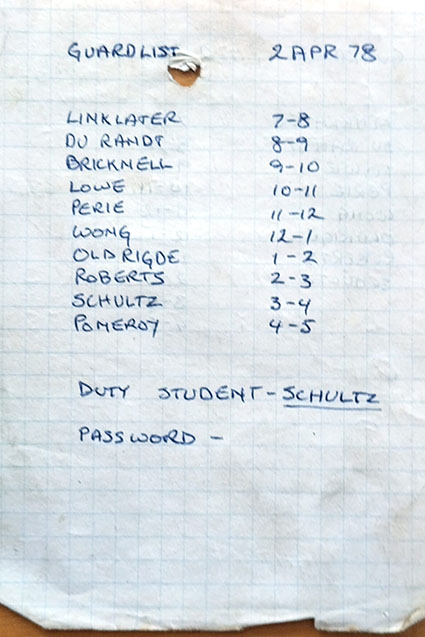 GUARD LIST 2 APR 78
LINKLATER 7-8
DU RANDT 8-9
BRICKNELL 9-10
LOWE 10-11
PERIE 11-12
WONG 12-1
OLDRIGDE 1-2
ROBERTS 2-3
SCHULTZ 3-4
POMEROY 4-5
DUTY STUDENT - SCHULTZ
PASSWORD -